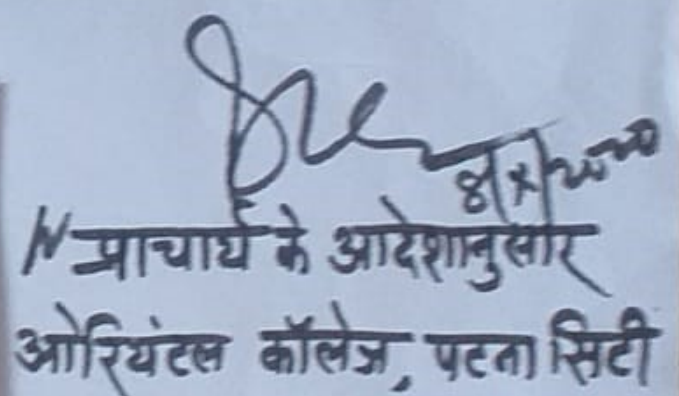 8/x/2020
प्राचार्य के आदेशानुसार
ओरियंटल कॉलेज, पटना सिटी